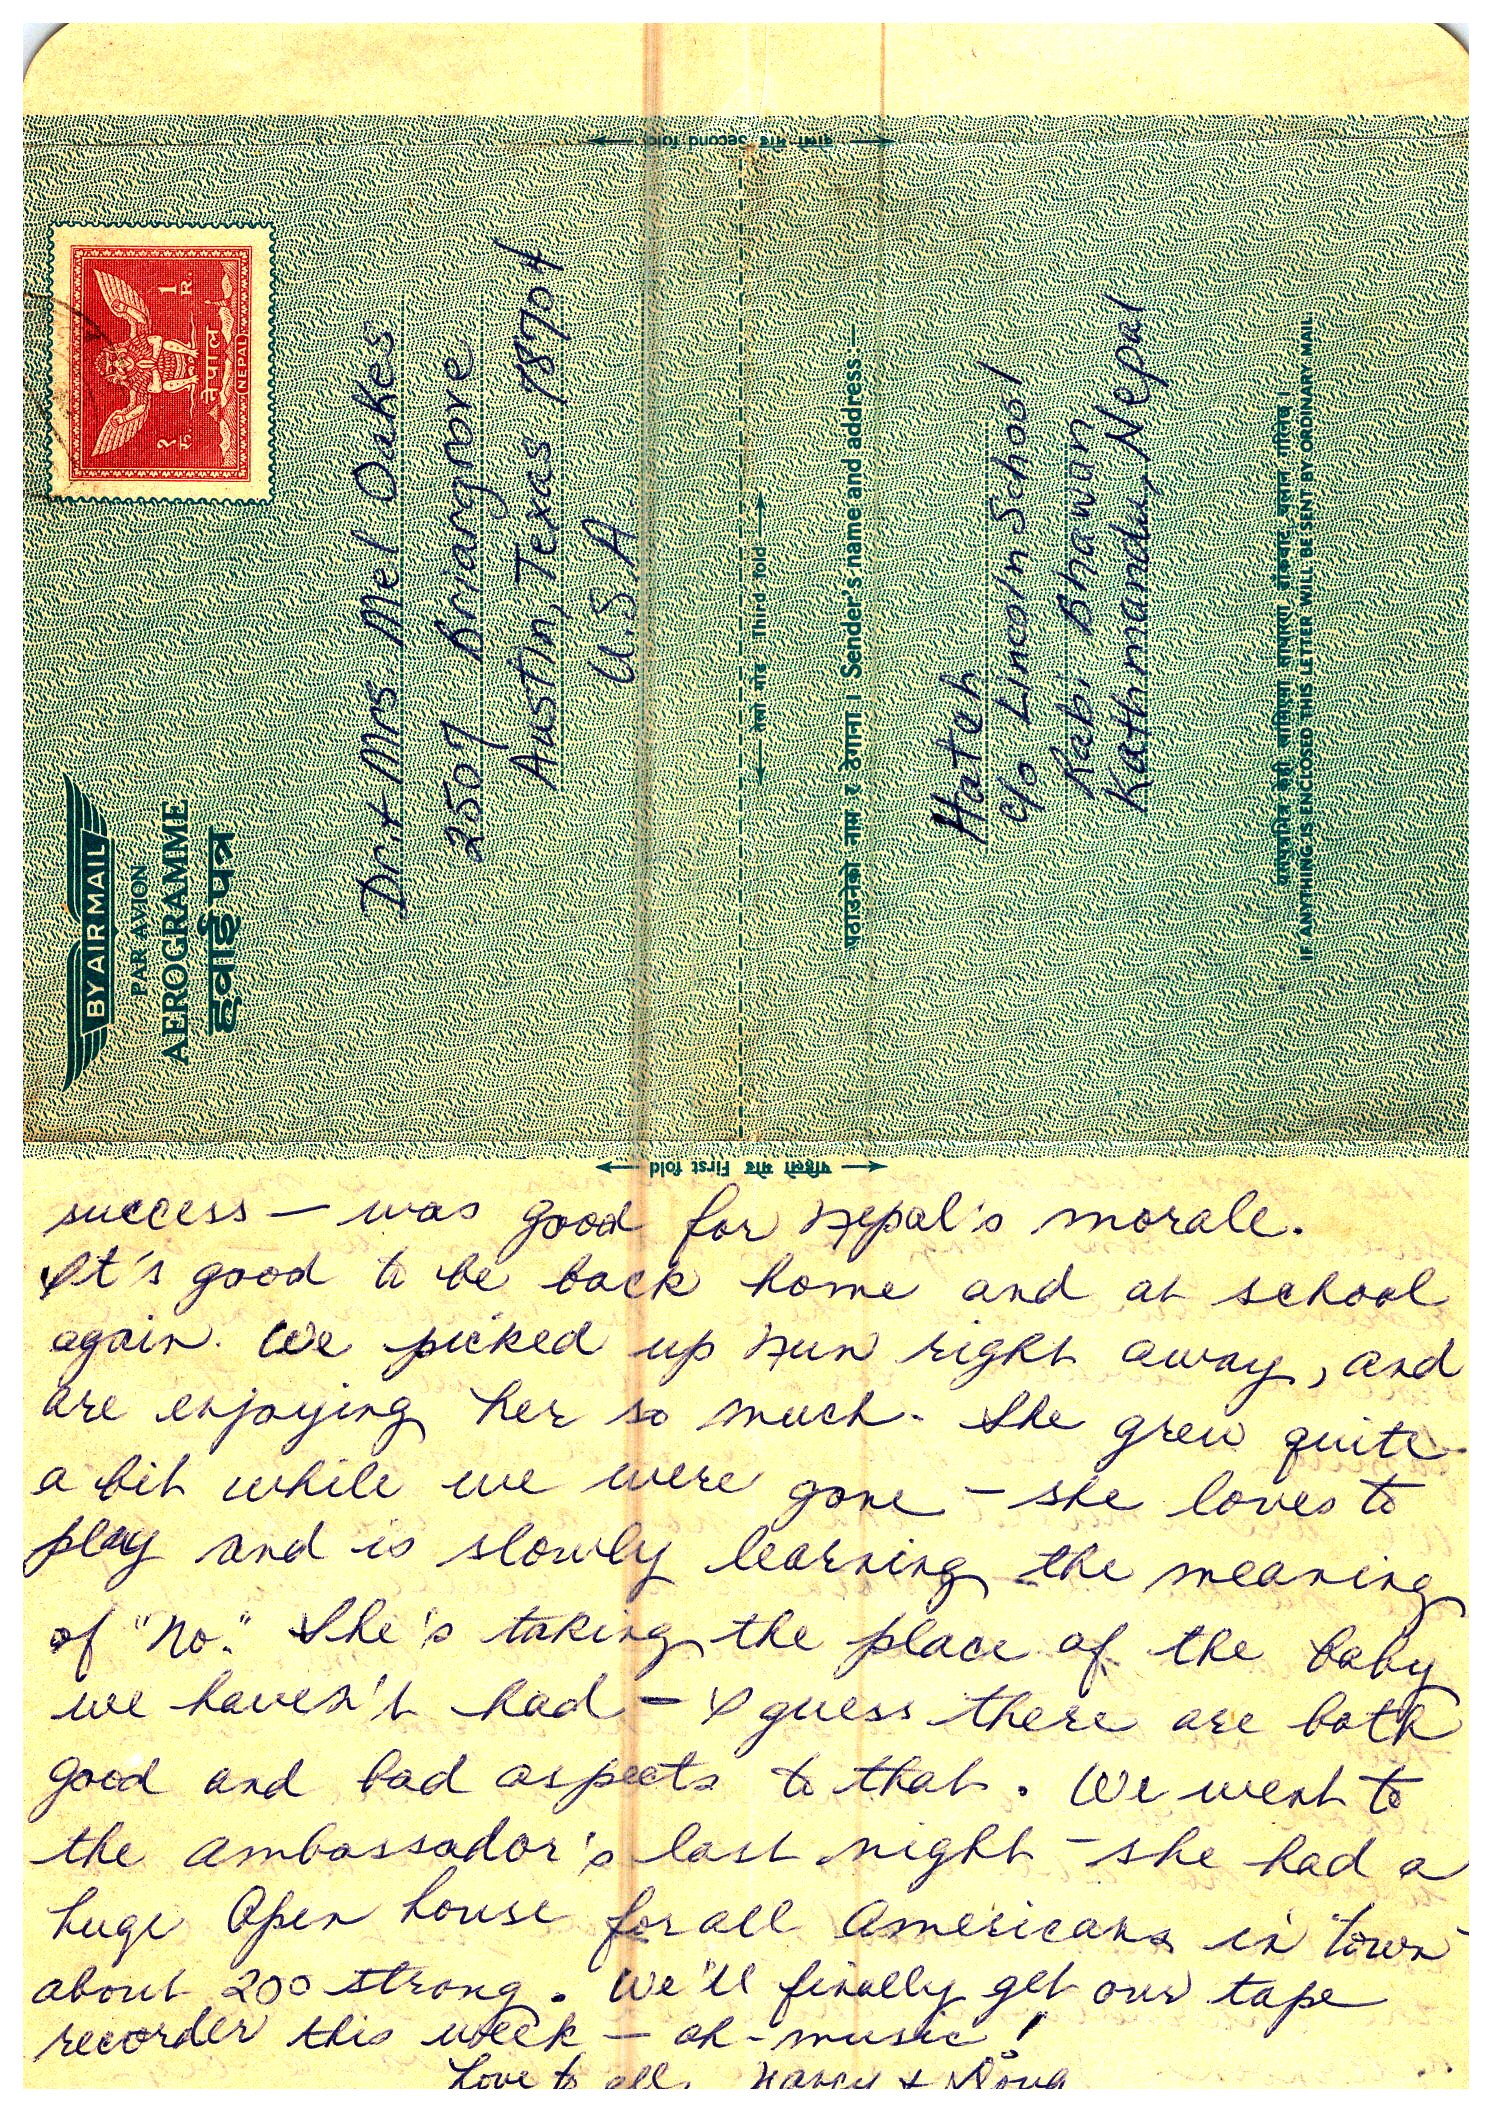 दोस्रो मोड Second fold
१ रु.
1 R.
नेपाल
NEPAL
BY AIR MAIL
PAR AVION
AEROGRAMME
हवाई पत्र
Dr. + Mrs. Mel Oakes
2507 Briargrove
Austin, Texas 78704
U.S.A
तेस्रो मोड Third fold
पठाउनेको नाम र ठेगाना । Sender's name and address
Hatch
c/o Lincoln School
Rabi Bhawan
Kathmandu, Nepal
IF ANYTHING IS ENCLOSED THIS LETTER WILL BE SENT BY ORDINARY MAIL
पहिलो मोड First fold
success — was good for Nepal's morale.
It's good to be back home and at school
again. We picked up Nun right away, and
are enjoying her so much. She grew quite
a bit while we were gone – she loves to
play and is slowly learning the meaning
of "No." She's taking the place of the baby
we haven't had – I guess there are both
good and bad aspects to that. We went to
the ambassador's last night – she had a
huge open house for all Americans in town –
about 200 strong. We'll finally get our tape
recorder this week – ah – music!
Love to all, Nancy + Doug